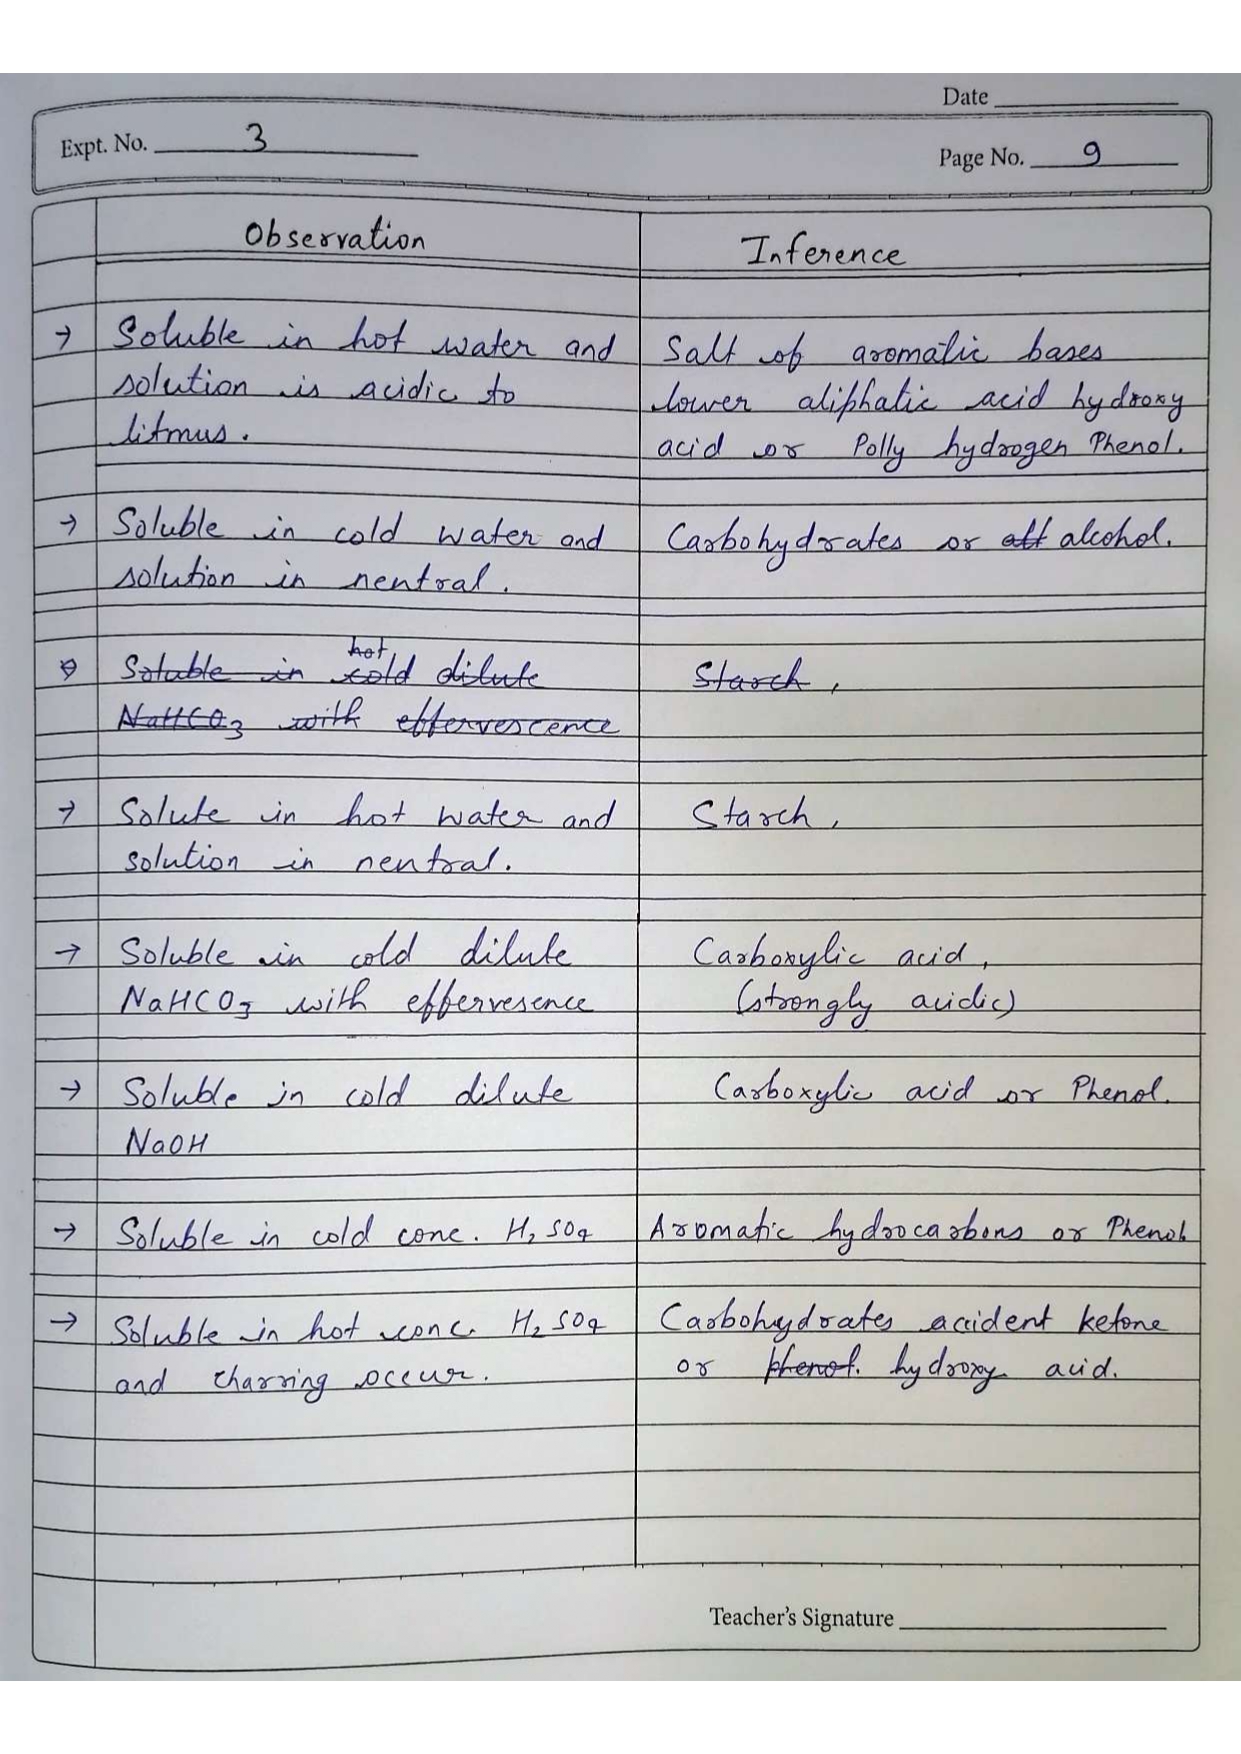 Date
Expt. No. 3
Page No. 9
Observation
Inference
→ Soluble in hot water and
solution is acidic to
litmus.
Salt of aromatic bases
lower aliphatic acid hydroxy
acid or Polly hydrogen Phenol.
→ Soluble in cold water and
solution in neutral.
Carbohydrates or alt alcohol.
hot
Soluble in cold dilute
NaHCO3 with effervescence
Starch,
→ Solute in hot water and
solution in neutral.
Starch,
→ Soluble in cold dilute
NaHCO3 with effervesence
Carboxylic acid,
(strongly acidic)
→ Soluble in cold dilute
NaOH
Carboxylic acid or Phenol.
→ Soluble in cold conc. H2SO4
Aromatic hydrocarbons or Phenol
→ Soluble in hot conc. H2SO4
and charring occur.
Carbohydrates accident ketone
or phenol. hydroxy acid.
Teacher's Signature